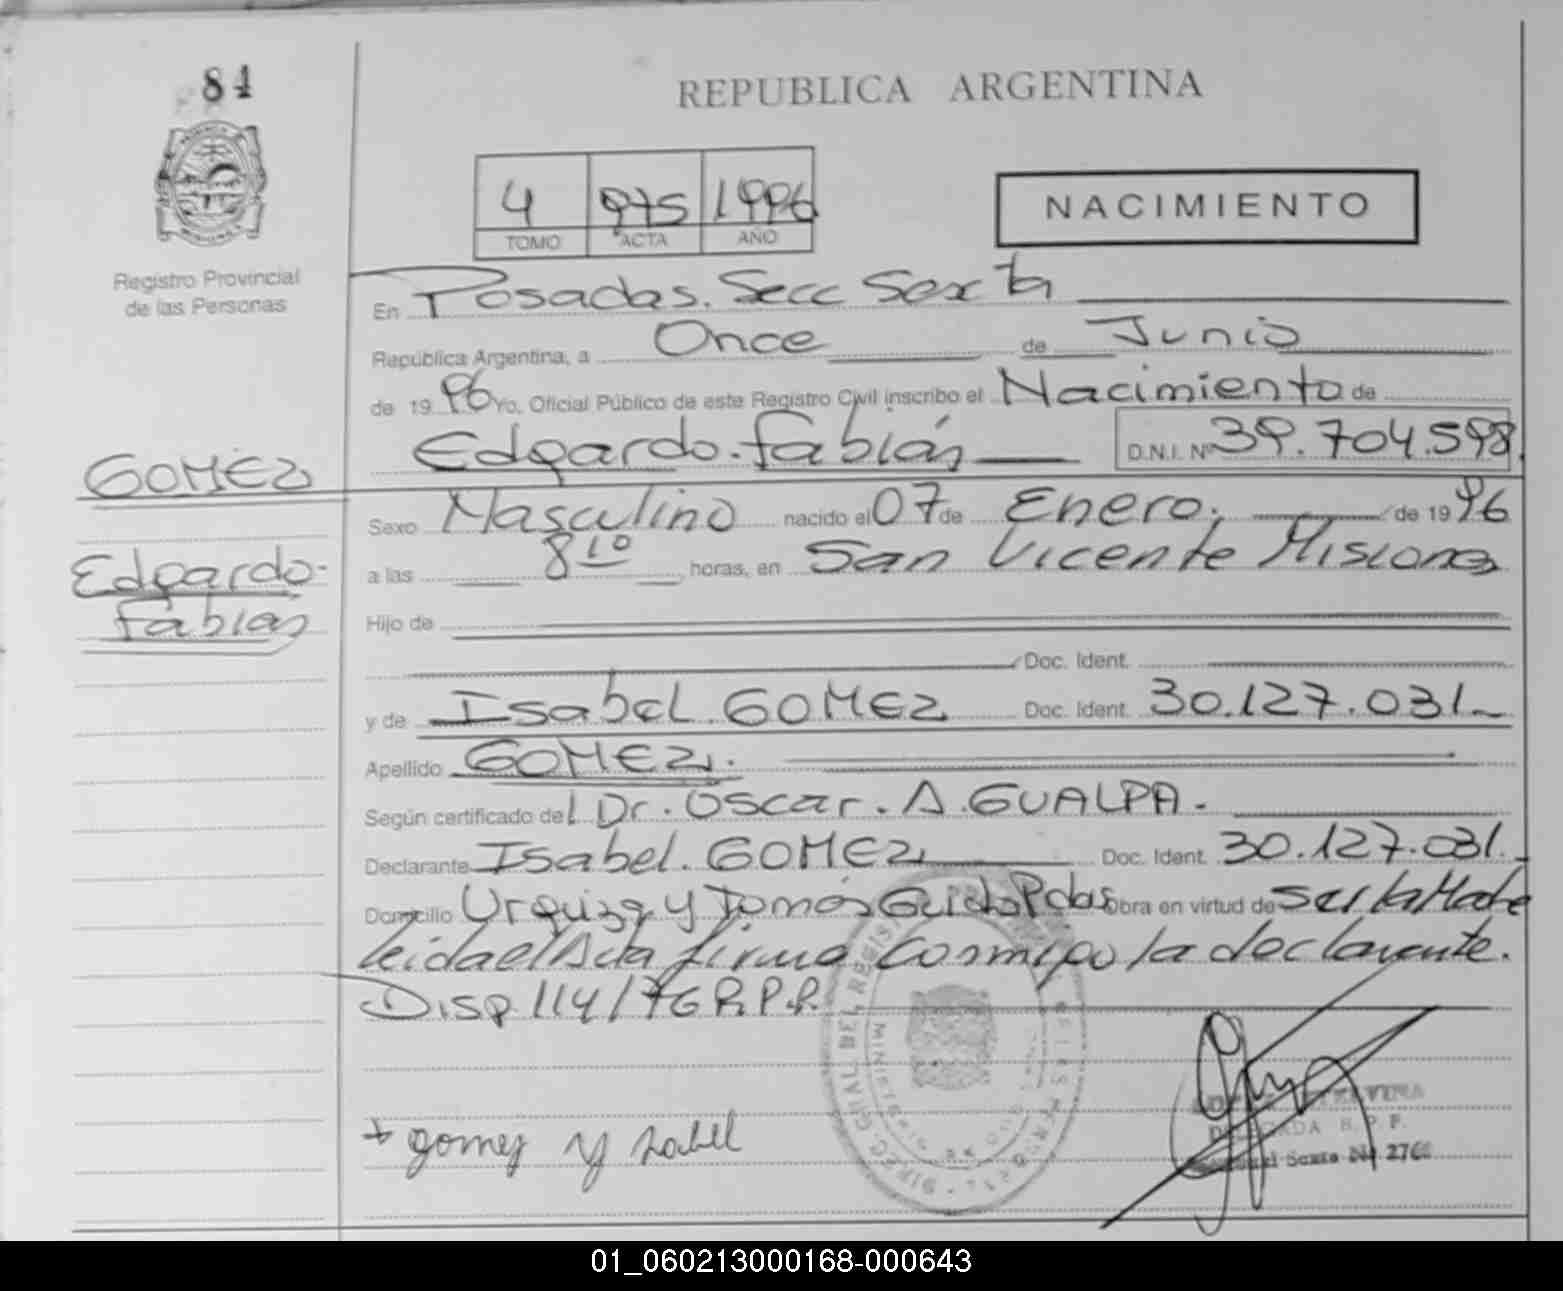 84
REPUBLICA ARGENTINA
4 975 1996
TOMO ACTA AÑO
NACIMIENTO
Registro Provincial
de las Personas
En Posadas. Secc Sexta
República Argentina, a Once de Junio
de 1996 Yo, Oficial Público de este Registro Civil inscribo el Nacimiento de
Edgardo. Fabián D.N.I. Nº 39.704.598.
GOMEZ
Edgardo-
Fabián
Sexo Masculino nacido el 07 de Enero, de 1996
a las 8 10 horas, en San Vicente Misiones
Hijo de
Doc. Ident.
y de Isabel. GOMEZ Doc. Ident. 30.127.031.-
Apellido GOMEZ.
Según certificado del Dr. Oscar. A. GUALPA.
Declarante Isabel. GOMEZ Doc. Ident. 30.127.031.-
Domicilio Urquiza y Tomás Guido Pdas Obra en virtud de ser la Madre
leída el Acta firma conmigo la declarante.
Disp 114/76 R.P.P.
+ gomez y sabel
R. P. F.
Nº 2768
01_060213000168-000643